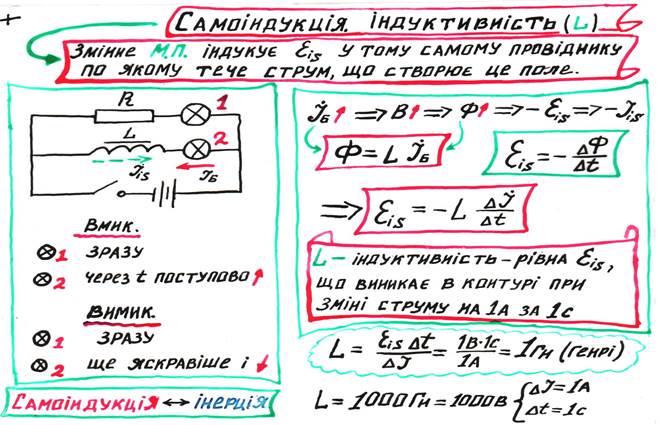 +
Самоіндукція. Індуктивність (L)
Змінне М.П. індукує Ɛis у тому самому провіднику
по якому тече струм, що створює це поле.
R
1
L
2
Jis
JБ
Вмик.
1 зразу
2 через t поступово ↑
Вимик.
1 зразу
2 ще яскравіше і ↓
Самоіндукція ↔ інерція
JБ ↑ ⇒ B ↑ ⇒ Ф ↑ ⇒ - Ɛis ⇒ - Jis
Ф = L JБ
Ɛis = - ΔФ/Δt
⇒ Ɛis = - L ΔJ/Δt
L - індуктивність - рівна Ɛis,
що виникає в контурі при
зміні струму на 1А за 1с
L = Ɛis Δt/ΔJ = 1В·1с/1А = 1Гн (генрі)
L = 1000Гн = 1000В { ΔJ = 1А
Δt = 1с